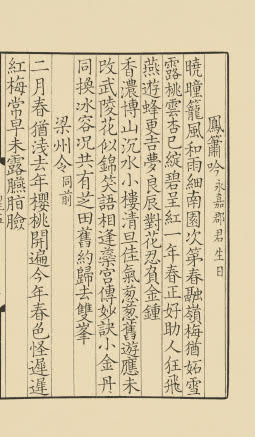 鳳簫吟 永嘉郡君生日
曉曈籠風和雨細南園次第春融嶺梅猶妬雪
露桃雲杏已綻碧呈紅一年春正好助人狂飛
燕遊蜂更吉夢良辰對花忍負金鍾
香濃博山沉水小樓清旦佳氣葱葱舊遊應未
改武陵花似錦笑語相逢蘂宮傳妙訣小金丹
同換冰容况共有之田舊約歸去雙峯
梁州令 同前
二月春猶淺去年櫻桃開遍今年春色怪遲遲
紅梅常早未露臙脂臉